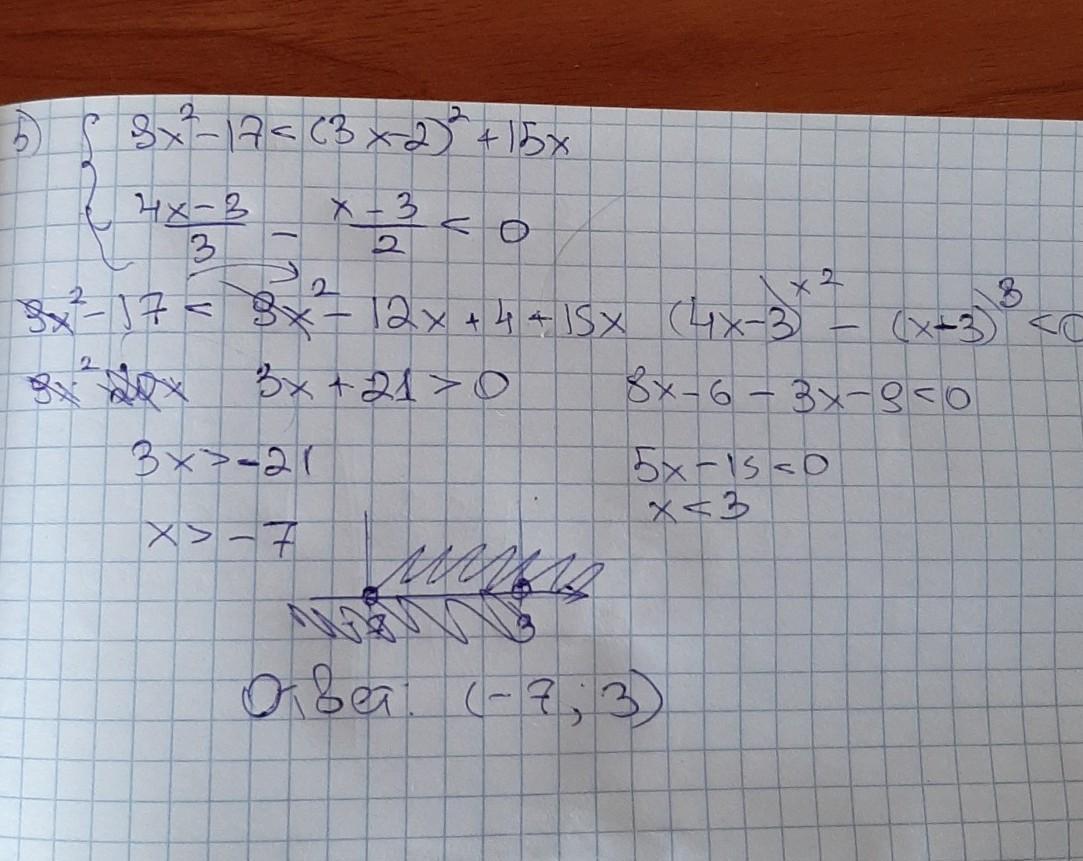 5) { 9x² - 17 < (3x-2)² + 15x
4x-3/3 - x-3/2 < 0
9x² - 17 < 9x² - 12x + 4 + 15x (4x-3)\x2 - (x+3)\3 <0
9x² 20x 3x + 21 > 0 8x - 6 - 3x - 9 < 0
3x > -21 5x - 15 < 0
x > -7 x < 3
-7 3
Ответ: (-7; 3)